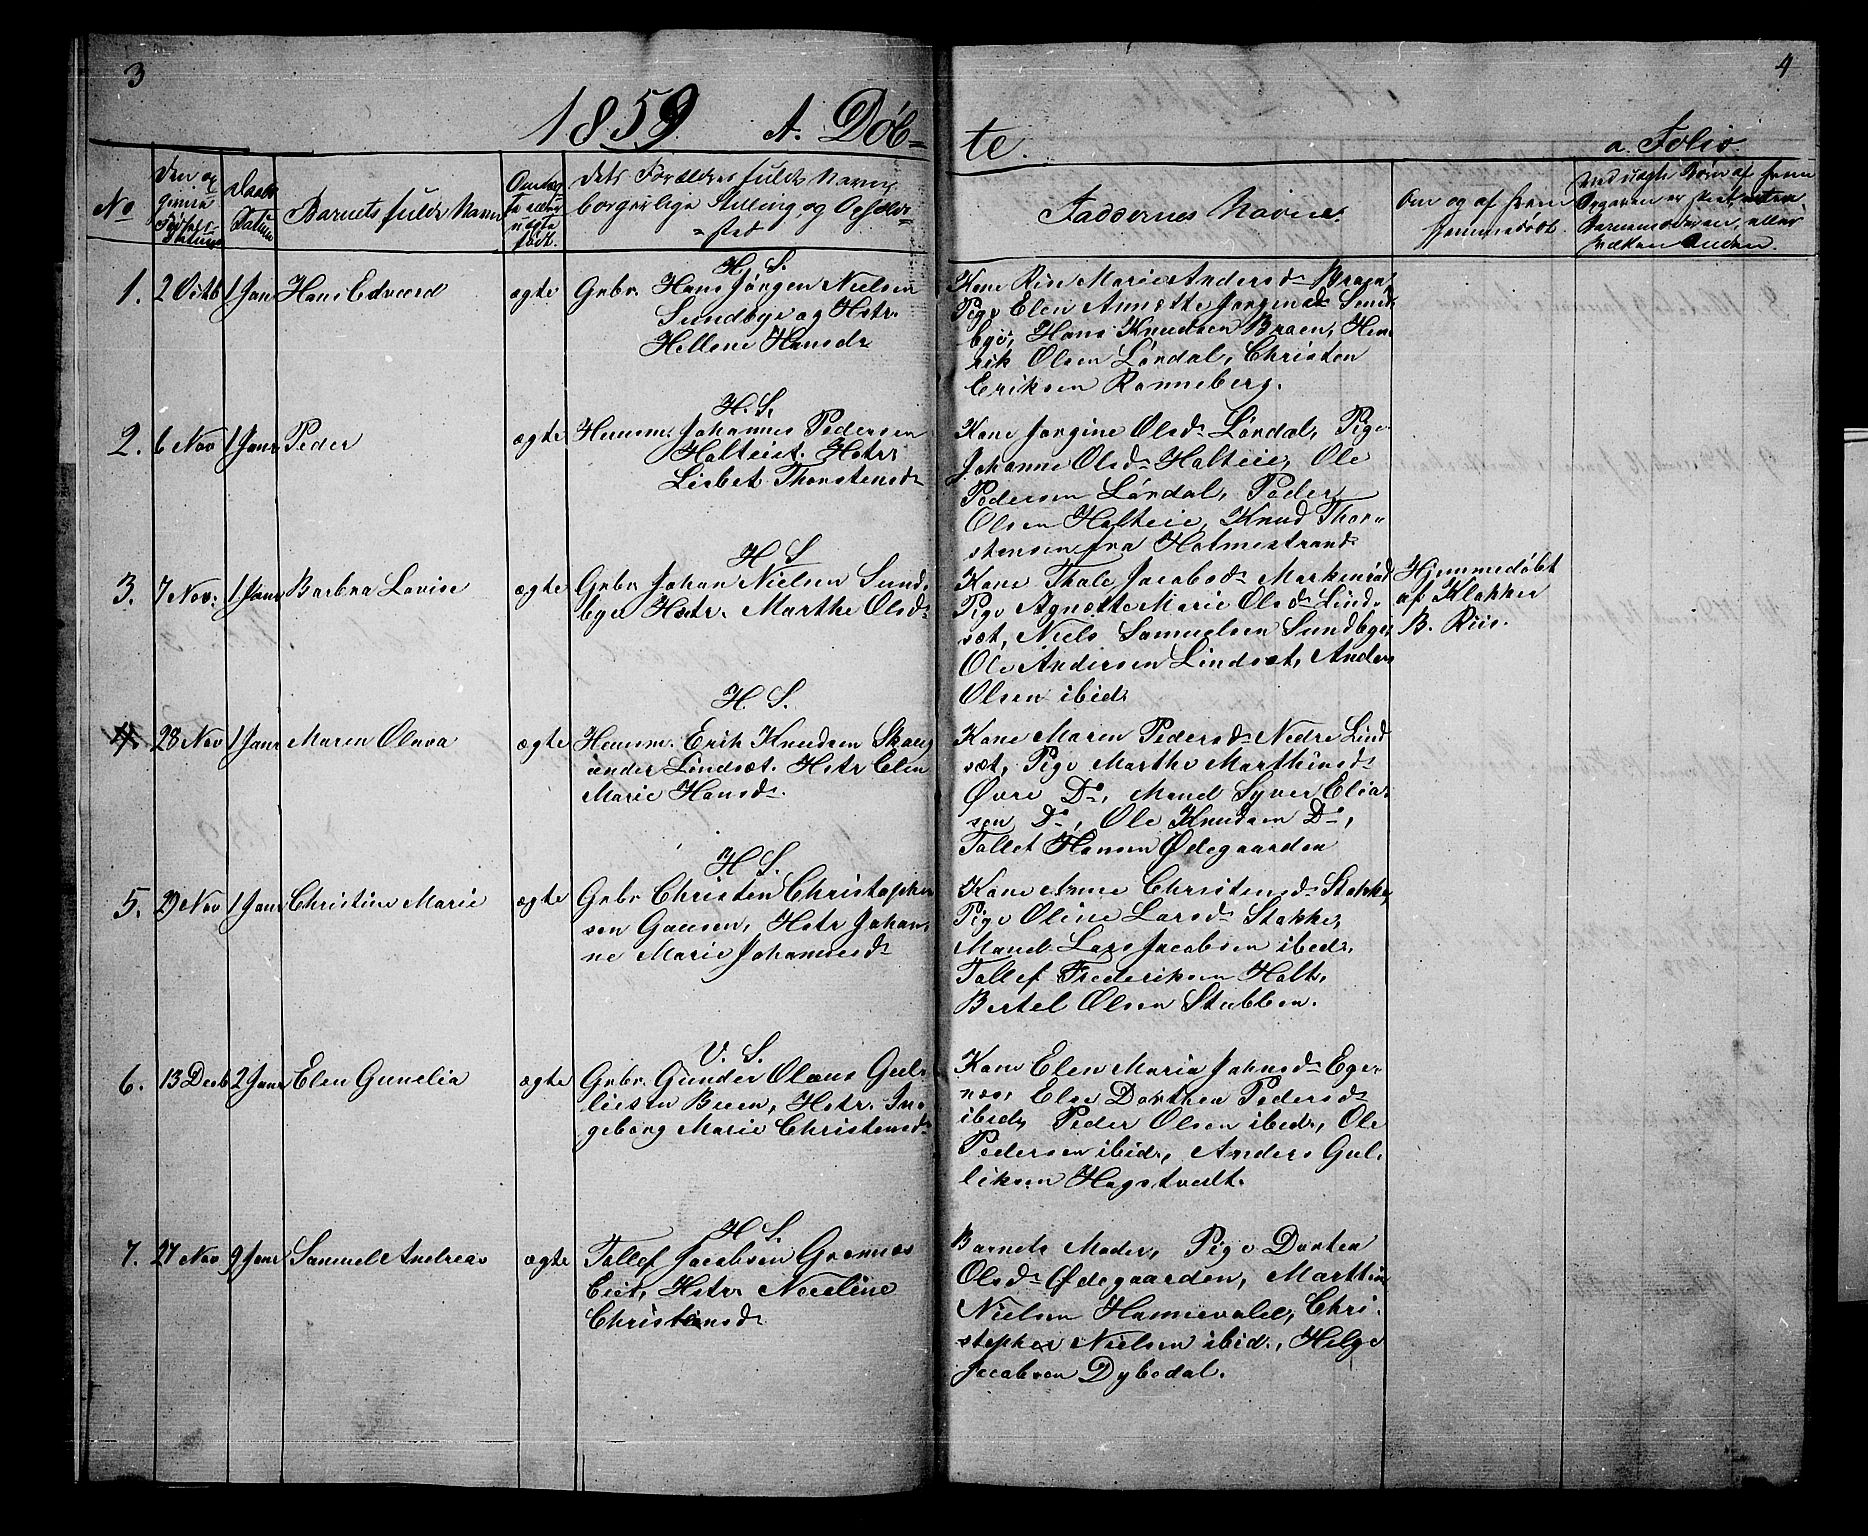 3
4
1859 A. Døb=
te.
a. Folio
No
Dets Forældres fulde Navne,
borgerlige Stilling, og Opholds=
sted
Barnets fulde Navn
Daabs
Datum
Faddernes Navne
Om og af hvem
hjemmedøbt.
1. 2 Octb 1 Janr Hans Edvard ægte
H. S.
Grbr. Hans Jørgen Nielsen
Sundbye og Hstr.
Hellene Hansdr
Kone Marie Andersdr Braaen,
Pige Elen Annette Jørgensdr Sund
bye, Hans Knudsen Braaen, Hen
rik Olsen Lørdal, Christen
Eriksen Ranneberg.
2. 6 Nov 1 Janr Peder ægte
H. S.
Huusm. Johannes Pedersen
Holteiet. Hstr.
Lisbet Thorstensdr
Kone Jørgine Olsdr Lørdal, Pige
Johanne Olsdr Holteie, Ole
Pedersen Lørdal, Peder
Olsen Holteie, Knud Thor=
stensen fra Holmestrand
3. 7 Nov. 1 Janr Barbra Lovise ægte
H. S.
Grbr Johan Nielsen Sund,
bye Hstr. Marthe Olsdr
Kone Thale Jacobsdr Markerød
Pige Agnette Marie Olsdr Lind,
sæt, Niels Samuelsen Sundbye,
Ole Andersen Lindsæt, Anders
Olsen ibid.
Hjemmedøbt
af Klokker
B. Riis.
4. 28 Nov 1 Janr Maren Olava ægte
H. S.
Huusm. Erik Knudsen Skoug
under Lindsæt. Hstr Elen
Marie Hansdr.
Kone Maren Pedersdr Nedre Lind
sæt, Pige Marthe Marthinsdr
Øvre Do, Mand Syver Elia=
sen Do, Ole Knudsen Do,
Tollef Hansen Ødegaarden
5. 29 Nov 1 Janr Christine Marie ægte
H. S.
Grbr Christen Christopher
sen Gausen, Hstr Johan,
ne Marie Johannesdr
Kone Anne Christensdr Stokke,
Pige Oline Larsdr Stokke,
Mand Lars Jacobsen ibid.,
Tollef Frederiksen Holt,
Bertel Olsen Stubben.
6. 13 Decb 2 Janr Elen Gunelia ægte
V. S.
Grbr. Gunder Olaus Gul=
liksen Bruen, Hstr. In=
geborg Marie Christensdr
Kone Elen Maria Johnsdr Ege=
næs, Else Dorthea Pedersdr
ibid, Peder Olsen ibid, Ole
Pedersen ibid., Anders Gul,
liksen Hagstvedt.
7. 27 Nov 9 Janr Samuel Andreas ægte
H. S.
Tollef Jacobsen Grønnæs
Eiet, Hstr. Neeline
Christensdr
Barnets Moder, Pige Dorthea
Olsdr Ødegaarden, Marthin
Nielsen Hannevold, Chri=
stopher Nielsen ibid., Helge
Jacobsen Dybedal.